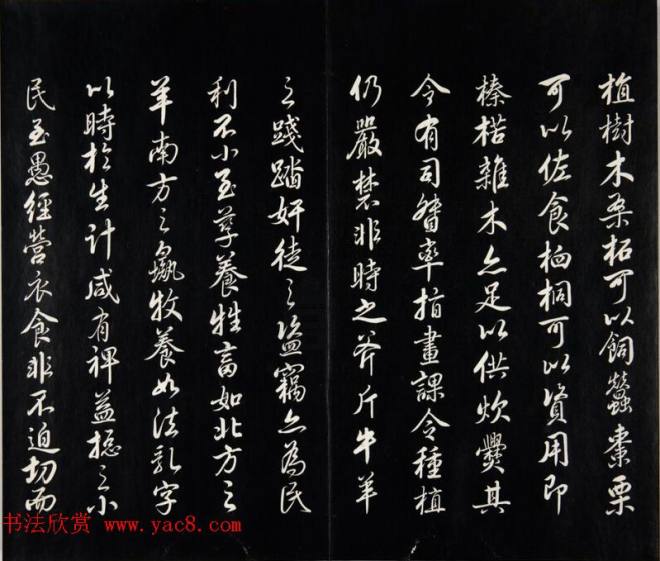 植樹木桑柘可以飼蠶棗栗
可以佐食桕桐可以資用即
榛楛雜木亦足以供炊爨其
令有司督率指畫課令種植
仍嚴禁非時之斧斤牛羊
之踐踏奸徒之盜竊亦為民
利不小至孳養牲畜如北方之
羊南方之彘牧養如法乳字
以時於生計咸有裨益揔之小
民至愚經營衣食非不迫切而
书法欣赏 www.yac8.com